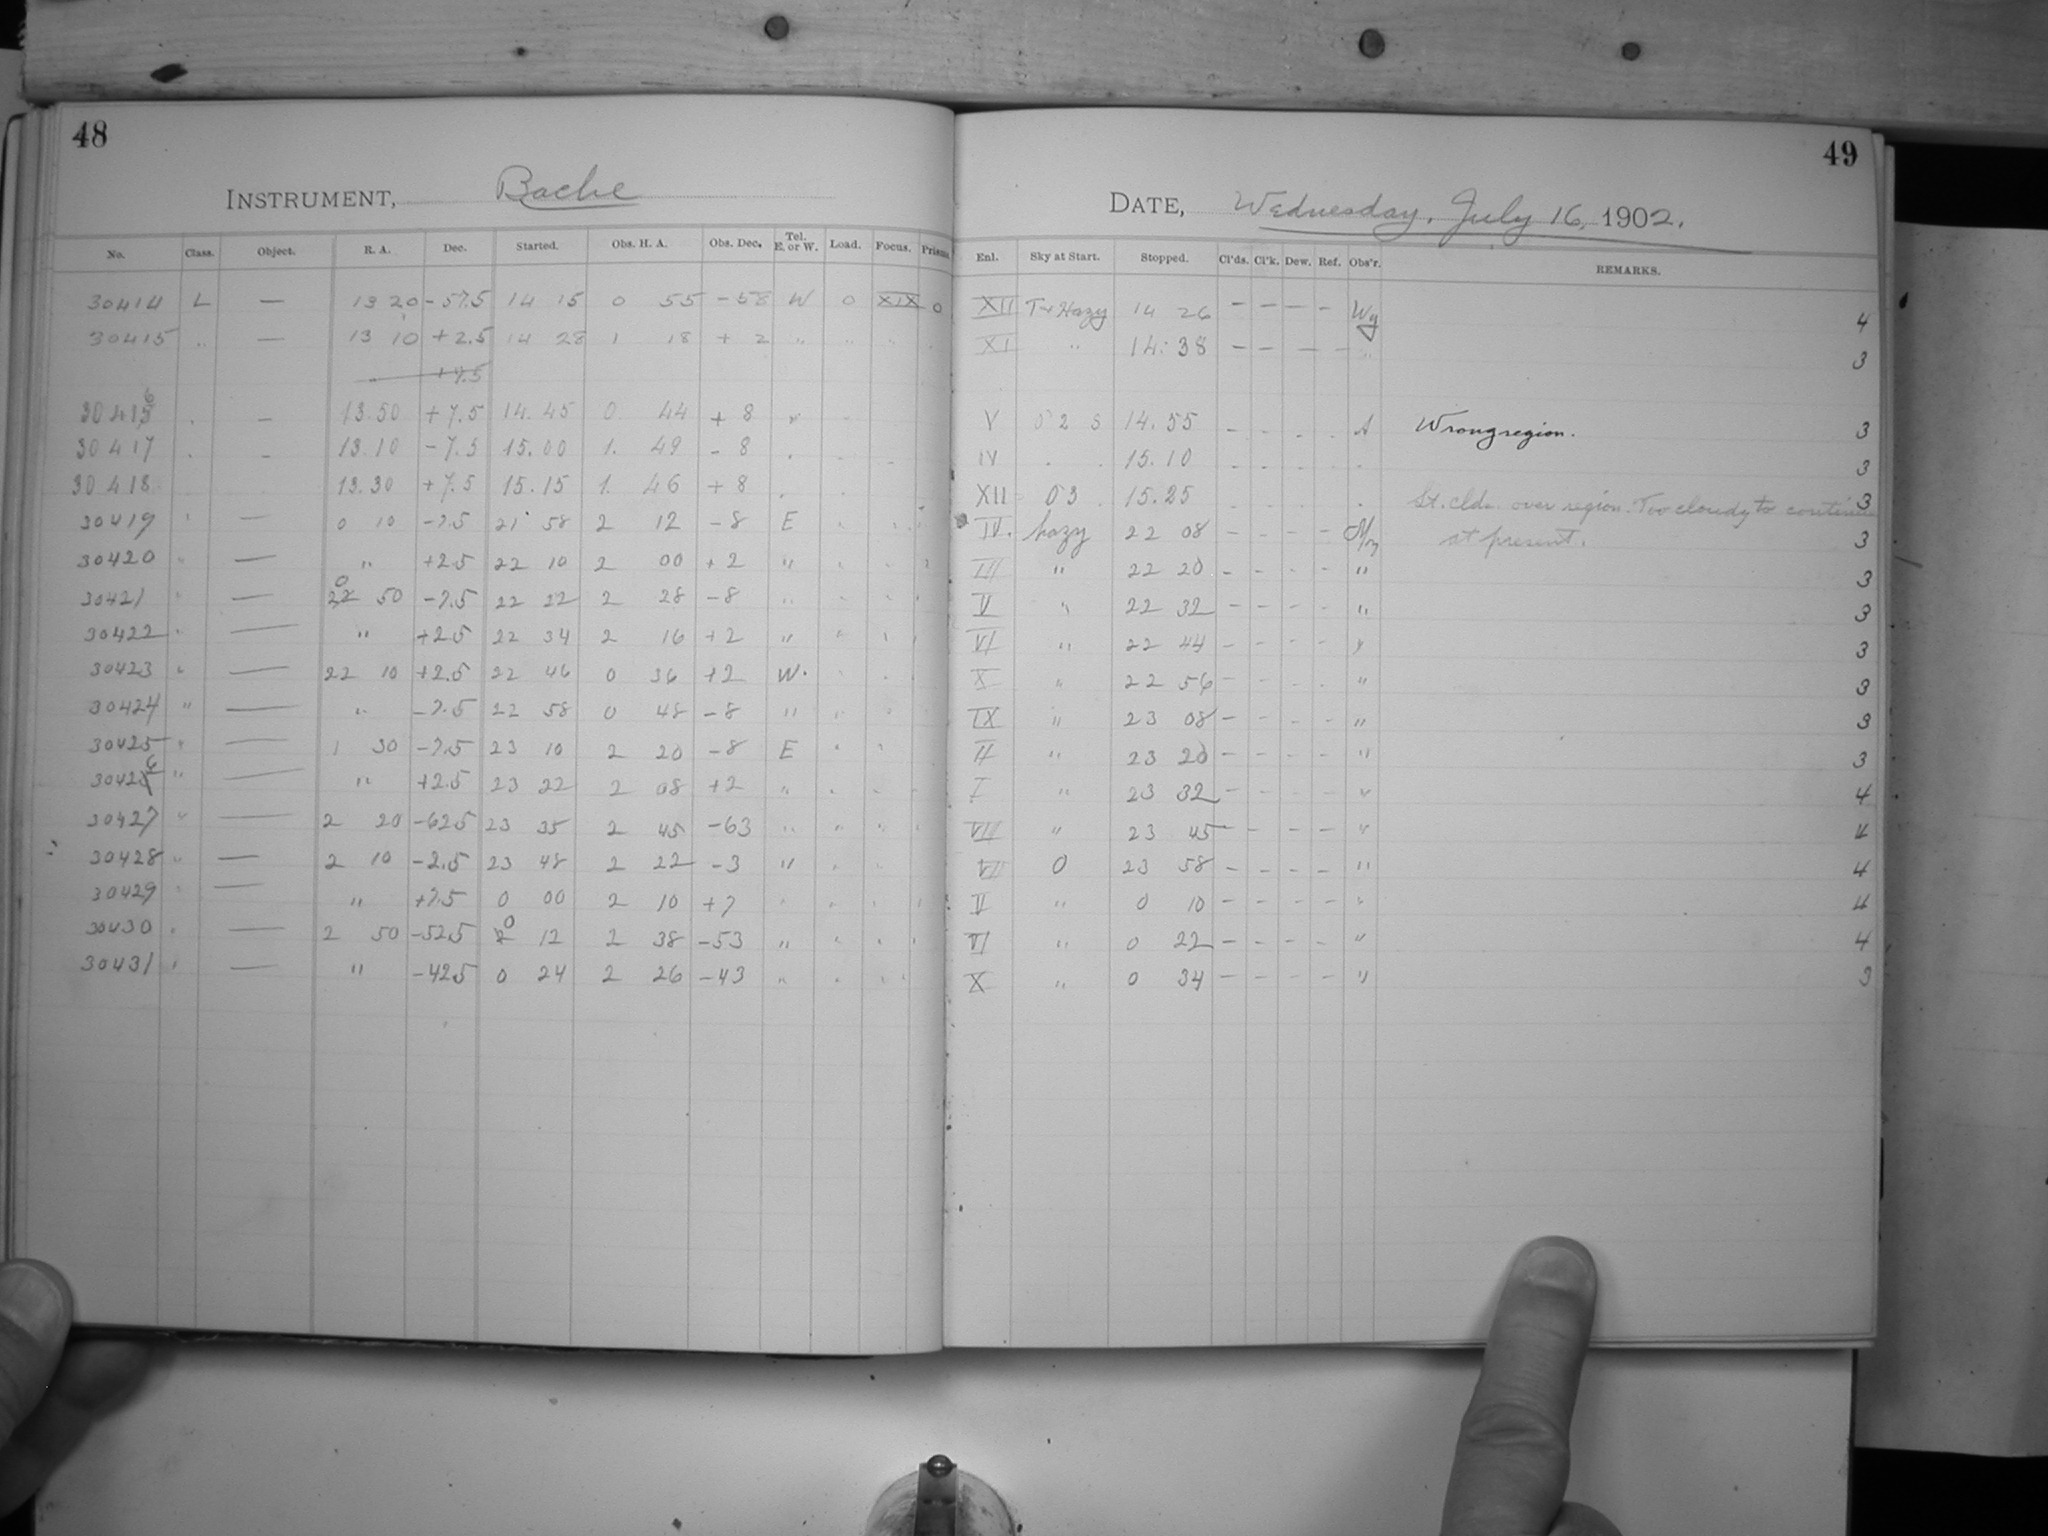 48
INSTRUMENT, Bache
No. Class. Object. R. A. Dec. Started. Obs. H. A. Obs. Dec. Tel. E. or W. Load. Focus. Prisms.
30414 L — 13 20 -57.5 14 15 0 55 -58 W 0 XIX 0
30415 " — 13 10 +2.5 14 28 1 18 + 2 " " " "
" +7.5
30416 — 13.50 +7.5 14.45 0 44 + 8 "
30417 — 13.10 -7.5 15.00 1. 49 - 8
30418 13.30 +7.5 15.15 1. 46 + 8
30419 " — 0 10 -7.5 21 58 2 12 -8 E
30420 — " +2.5 22 10 2 00 +2 "
30421 " — 0 50 -7.5 22 22 2 28 -8 "
30422 " — " +2.5 22 34 2 16 +2 "
30423 " — 22 10 +2.5 22 46 0 36 +2 W.
30424 " — " -7.5 22 58 0 48 -8 "
30425 " — 1 30 -7.5 23 10 2 20 -8 E
30426 " — " +2.5 23 22 2 08 +2 "
30427 " — 2 20 -62.5 23 35 2 45 -63 " " " "
30428 " — 2 10 -2.5 23 48 2 22 -3 "
30429 " — " +7.5 0 00 2 10 +7 "
30430 " — 2 50 -52.5 0 12 2 38 -53 "
30431 " — " -42.5 0 24 2 26 -43 "
49
DATE, Wednesday, July 16, 1902.
Enl. Sky at Start. Stopped. Cl'ds. Cl'k. Dew. Ref. Obs'r. REMARKS.
XII Hazy 14 26 — — — — Wy 4
XI " 14:38 — — — — " 3
V 14.55 - - - - A Wrong region. 3
IV 15.10 - - - - 3
XII 03 15.25 St. clds. over region. Too cloudy to continue 3
IV. hazy 22 08 - - - - at present. 3
III " 22 20 - - - - " 3
V " 22 32 - - - - " 3
VI " 22 44 - - - - " 3
X " 22 56 - - - - " 3
IX " 23 08 - - - - " 3
II " 23 20 - - - - " 3
I " 23 32 - - - - " 4
" 23 45 - - - - " 4
0 23 58 - - - - " 4
" 0 10 - - - - " 4
" 0 22 - - - - " 4
X " 0 34 - - - - " 3